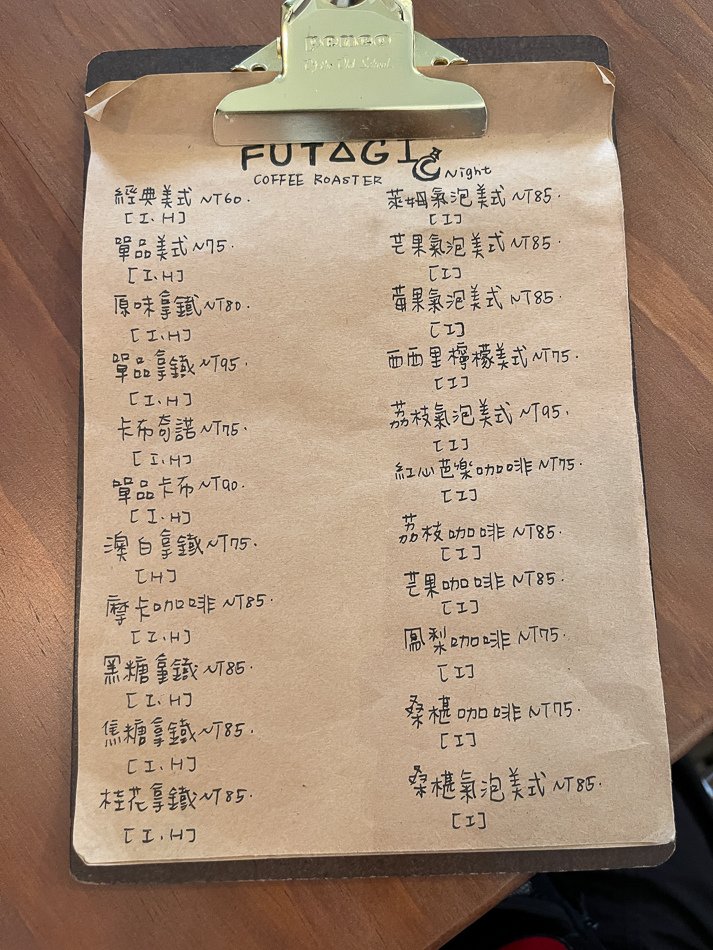 FUTAGI
COFFEE ROASTER
Night
經典美式 NT60.
[I、H]
單品美式 N75.
[I、H]
原味拿鐵 NT80.
[I、H]
單品拿鐵 NT95.
[I、H]
卡布奇諾 NT75.
[I、H]
單品卡布 NT90.
[I、H]
澳白拿鐵 NT75.
[H]
摩卡咖啡 NT85.
[I、H]
黑糖拿鐵 NT85.
[I、H]
焦糖拿鐵 NT85.
[I、H]
桂花拿鐵 NT85.
[I、H]
萊姆氣泡美式 NT85.
[I]
芒果氣泡美式 NT85.
[I]
莓果氣泡美式 NT85
[I]
西西里檸檬美式 NT75.
[I]
荔枝氣泡美式 NT95.
[I]
紅心芭樂咖啡 NT75.
[I]
荔枝咖啡 NT85.
[I]
芒果咖啡 NT85.
[I]
鳳梨咖啡 NT75.
[I]
桑椹咖啡 NT75.
[I]
桑椹氣泡美式 NT85.
[I]